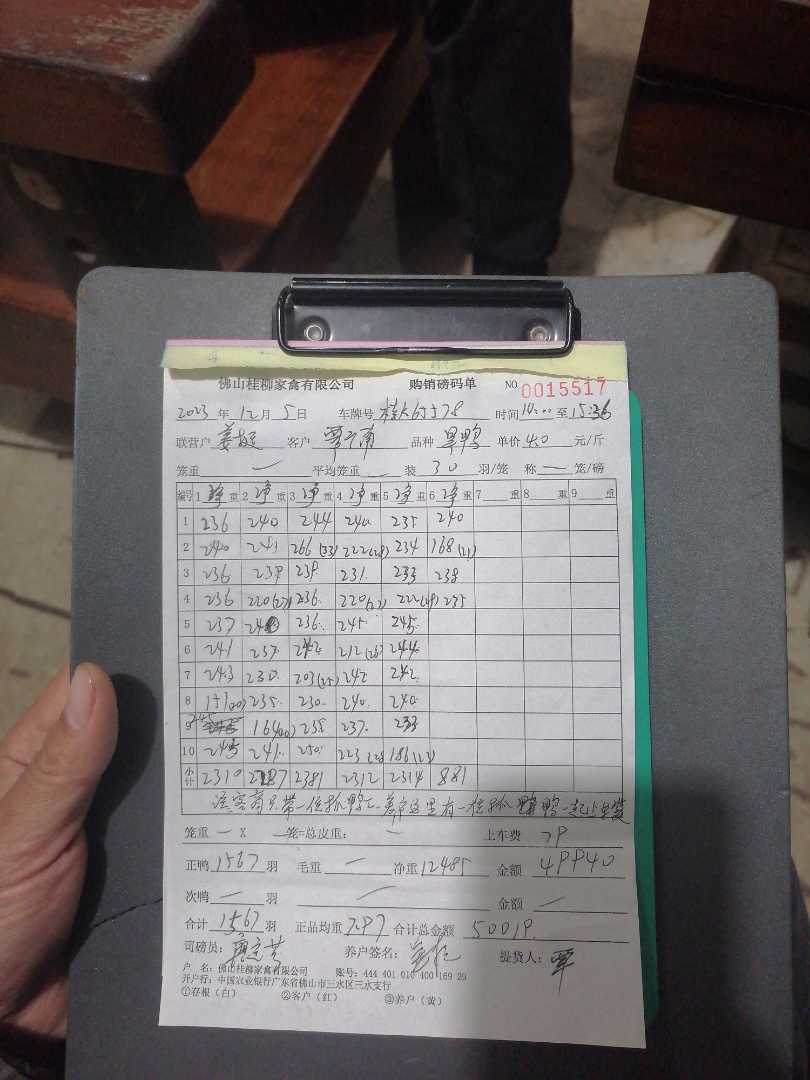 佛山桂柳家禽有限公司 购销磅码单 NO 0015517
2023年12月5日 车牌号 时间14:00至15:36
联营户 客户 品种 单价4.0元/斤
笼重 — 平均笼重 — 装30羽/笼 称 — 笼/磅
编号 1净重 2净重 3净重 4净重 5净重 6净重 7 重 8 重 9 重
1 236 240 244 240 235 240
2 240 241 266(33) 222(28) 234 168(21)
3 236 239 239 231 233 238
4 236 220(27) 236 220(27) 222(28) 235
5 237 236 245 245
6 241 237 242 212(26) 244
7 243 230 203(25) 242 242
8 235 230 240 240
9 245 238 237 233
10 245 241 250 223(28 186(23)
小计 2310 2287 2381 2312 2314 881
笼重 — X — 笼=总皮重: — 上车费 79
正鸭1567羽 毛重 — 净重12485 金额49940
次鸭 — 羽 — 金额 —
合计1567羽 正品均重7.97 合计总金额50019
司磅员: 养户签名: 提货人:覃
户 名:佛山桂柳家禽有限公司 账号:444 401 010 400 169 29
开户行:中国农业银行广东省佛山市三水区三水支行
①存根(白) ②客户(红) ③养户(黄)